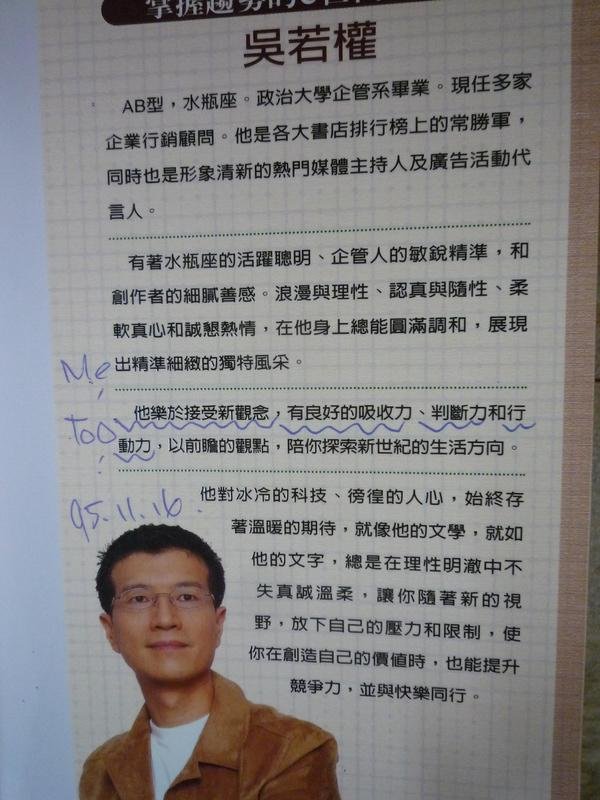 掌握趨勢的
吳若權
AB型，水瓶座。政治大學企管系畢業。現任多家
企業行銷顧問。他是各大書店排行榜上的常勝軍，
同時也是形象清新的熱門媒體主持人及廣告活動代
言人。
有著水瓶座的活躍聰明、企管人的敏銳精準，和
創作者的細膩善感。浪漫與理性、認真與隨性、柔
軟真心和誠懇熱情，在他身上總能圓滿調和，展現
出精準細緻的獨特風采。
Me
too
!
他樂於接受新觀念，有良好的吸收力、判斷力和行
動力，以前瞻的觀點，陪你探索新世紀的生活方向。
95.11.16.
他對冰冷的科技、徬徨的人心，始終存
著溫暖的期待，就像他的文學，就如
他的文字，總是在理性明澈中不
失真誠溫柔，讓你隨著新的視
野，放下自己的壓力和限制，使
你在創造自己的價值時，也能提升
競爭力，並與快樂同行。